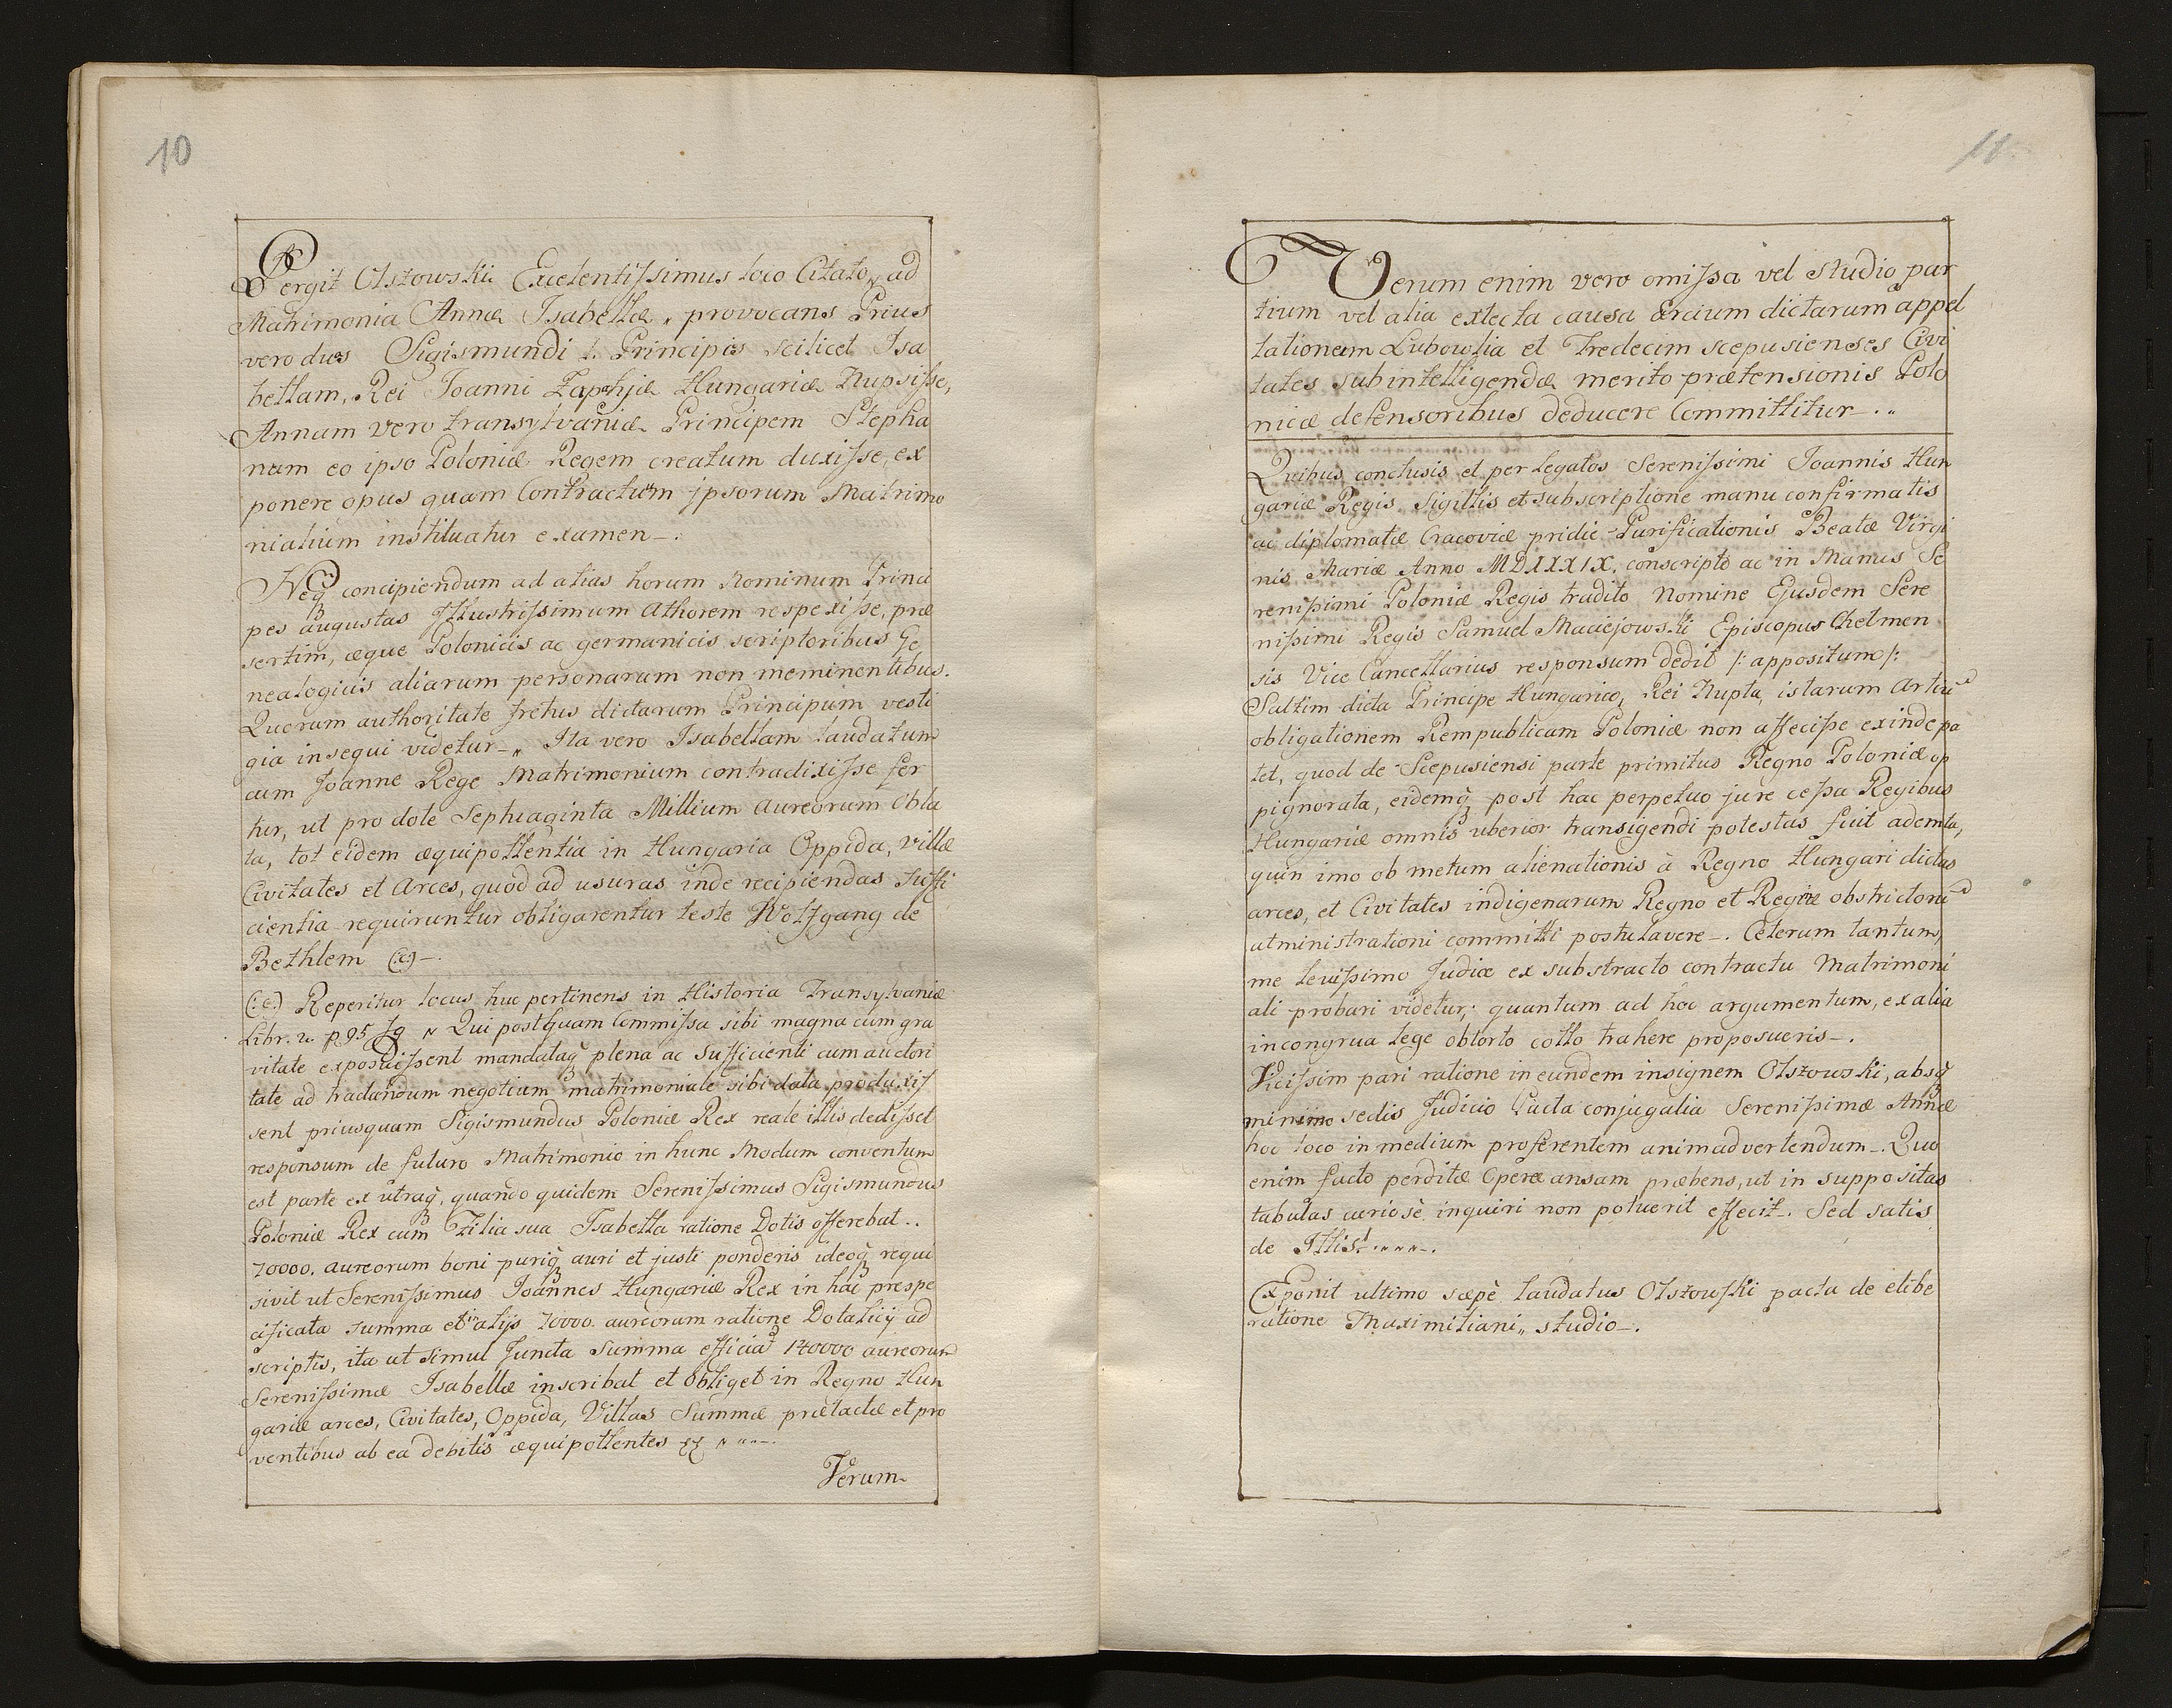 10
Pergit Olszowskii Excelentissimus loco Citato „ ad
Matrimonia Annæ Isabellæ „ provocans Prius
vero duos Sigismundi 1. Principis scilicet Isa
bellam, Rei Joanni Zapolyæ Hungariæ Nupsisse,
Annam vero transylvaniæ Principem Stepha
num eo ipso Poloniæ Regem creatum duxisse, ex
ponere opus quam Contractuum ipsorum Matrimo
nialium instituatur examen-.
Neq̃ concipiendum ad alias horum Nominum Princi
pes augustas Illustrissimum Athorem respexisse, præ
sertim, æque Polonicis ac germanicis scriptoribus Ge
nealogicis aliarum personarum non meminentibus.
Quorum authoritate fretus dictarum Principum vesti
gia insequi videtur-„ Ita vero Isabellam laudatum
cum Joanne Rege Matrimonium contradixisse fer
tur, ut pro dote Septuaginta Millium Aureorum obla
ta, tot eidem æquipollentia in Hungaria Oppida, Villæ
Civitates et Arces, quod ad usuras inde recipiendas Suffi
cientia requiruntur obligarentur teste Wolfgang de
Bethlem (:e:)-.
(:e:) Reperitur locus huc pertinens in Historia Transylvaniæ
Libr. p 95 „ Qui postquam Commissa sibi magna cum gra
vitate exposuissent mandataq̃ plena ac Sufficienti cum auctori
tate ad tractandum negotium matrimoniale sibi data produxis
sent priusquam Sigismundus Poloniæ Rex reale illis dedisset
responsum de futuro Matrimonio in hunc Modum conventum
est parte ex utraq̃, quando quidem Serenissimus Sigismundus
Poloniæ Rex cum Filia sua Isabella ratione Dotis offerebat..
70000. aureorum boni puriq̃ auri et justi ponderis ideoq̃ requi
sivit ut Serenissimus Joannes Hungariæ Rex in hac prespe
cificata summa et alijs 70000. aureorum ratione Dotalicij ad
scriptis, ita ut simul Juncta Summa efficiat 140000 aureorum
Serenissimæ Isabellæ inscribat et obliget in Regno Hun
gariæ arces, Civitates, Oppida, Villas Summæ prætactæ et pro
ventibus ab ea debitis æquipollentes
Verum
11.
Verum enim vero omissa vel studio par
tium vel alia extecta causa Arcium dictarum appel
lationem Lubowlia et Tredecim scepusienses Civi
tates subintelligendæ merito prætensionis Polo
nicæ defensoribus deducere Committitur-..
Quibus conclusis et per Legatos Serenissimi Joannis Hun
gariæ Regis Sigillis et subscriptione manu confirmatis
ac diplomatæ Cracoviæ pridie Purificationis Beatæ Virgi
nis Mariæ Anno MDXXXIX. conscripto ac in Manus Se
renissimi Poloniæ Regis tradito Nomine Ejusdem Sere
nissimi Regis Samuel Maciejowski Episcopus Chelmen
sis Vice Cancellarius responsum dedit /: appositum /:
Saltim dicta Principe Hungarico, Rei Nupta, istarum Artium
obligationem Rempublicam Poloniæ non affecisse exinde pa
tet, quod de Scepusiensi parte primitus Regno Poloniæ op
pignorata, eidemq̃ post hac perpetuo jure cessa Regibus
Hungariæ omnis uberior transigendi potestas fuit ademta,
quin imo ob metum alienationis à Regno Hungari dictas
arces, et Civitates indigenarum Regno et Reginæ obstrictorum
atministrationi committi postulavere-. Ceterum tantum,
me levissimo Judice ex substracto contractu Matrimoni
ali probari videtur; quantum ad hoc argumentum, ex alia
incongrua lege obtorto collo trahere proposueris-.
Vicissim pari ratione in eundem insignem Olszowski, absq̃
minimo sedis Judicio Pacta conjugalia Serenissimæ Annæ
hoc loco in medium proferentem animadvertendum-. Quo
enim facto perditæ Operæ ansam præbens, ut in suppositas
tabulas curiosè inquiri non potuerit effecit-. Sed satis
de Illis!
Exponit ultimo sæpè laudatus Olszowski pacta de elibe
ratione Maximiliani „ studio-.